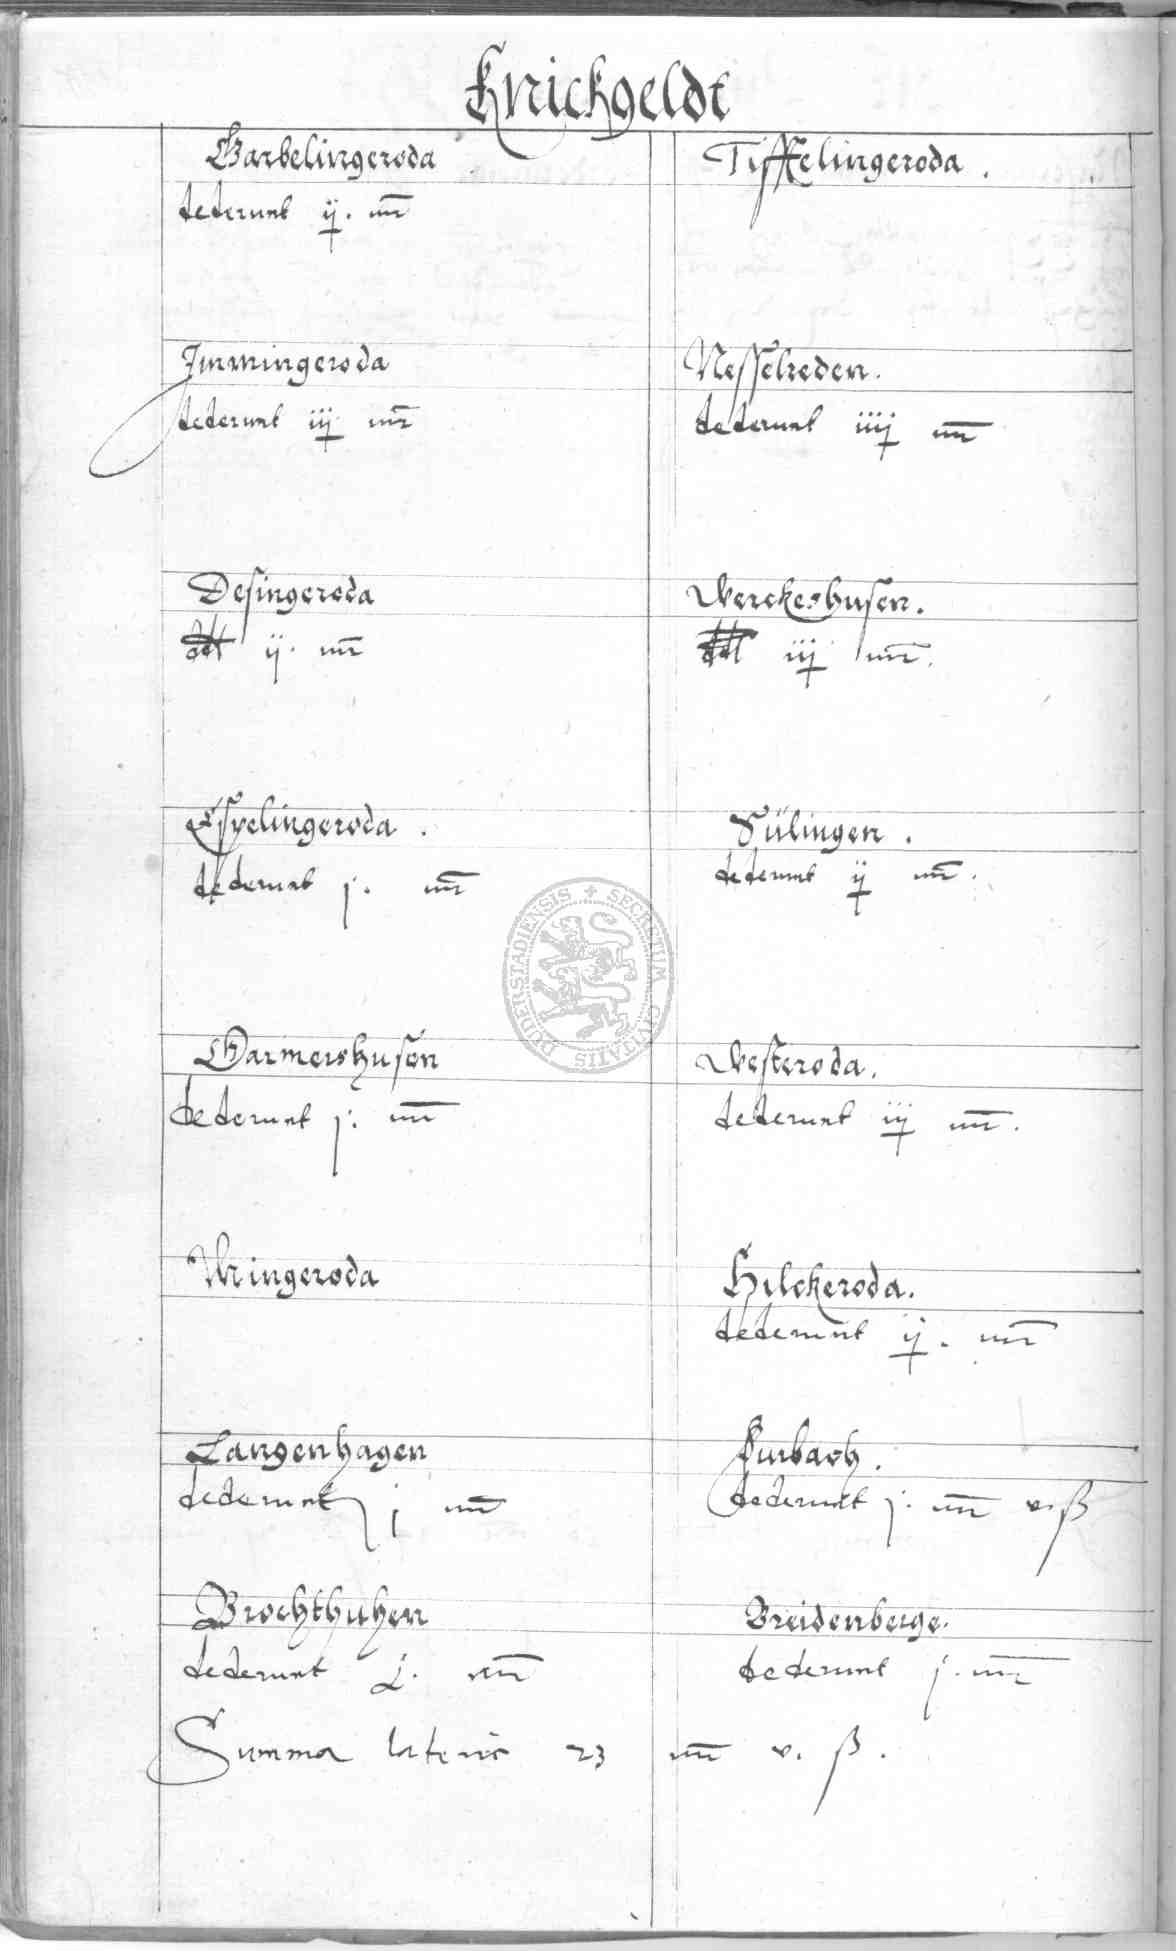 Knickgeldt
Garbelingeroda
dederunt ij. mr
Immingeroda
dederunt iij mr
Desingeroda
ddt ij. mr
Espelingeroda .
dederunt j. mr
Garmershusen
dederunt j. mr
Wringeroda
Langenhagen
dederunt j mr
Brochthusen
dederunt j. mr
Tifftelingeroda .
Nesselreden.
dederunt iiij mr
Werckeshusen.
ddt iij mr.
Sülingen .
dederunt ij mr.
Westeroda.
dederunt iij mr.
Hilckeroda.
dederunt ij. mr
Furbach.
dederunt j. mr v. ß
Breidenberge.
dederunt j. mr
Summa lateris 23 mr v. ß.
SECRETUM CIVITATIS DUDERSTADIENSIS